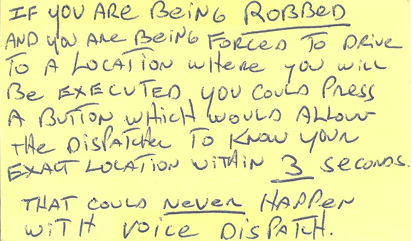 IF YOU ARE BEING ROBBED
AND YOU ARE BEING FORCED TO DRIVE
TO A LOCATION WHERE YOU WILL
BE EXECUTED YOU COULD PRESS
A BUTTON WHICH WOULD ALLOW
THE DISPATCHER TO KNOW YOUR
EXACT LOCATION WITHIN 3 SECONDS.
THAT COULD NEVER HAPPEN
WITH VOICE DISPATCH.